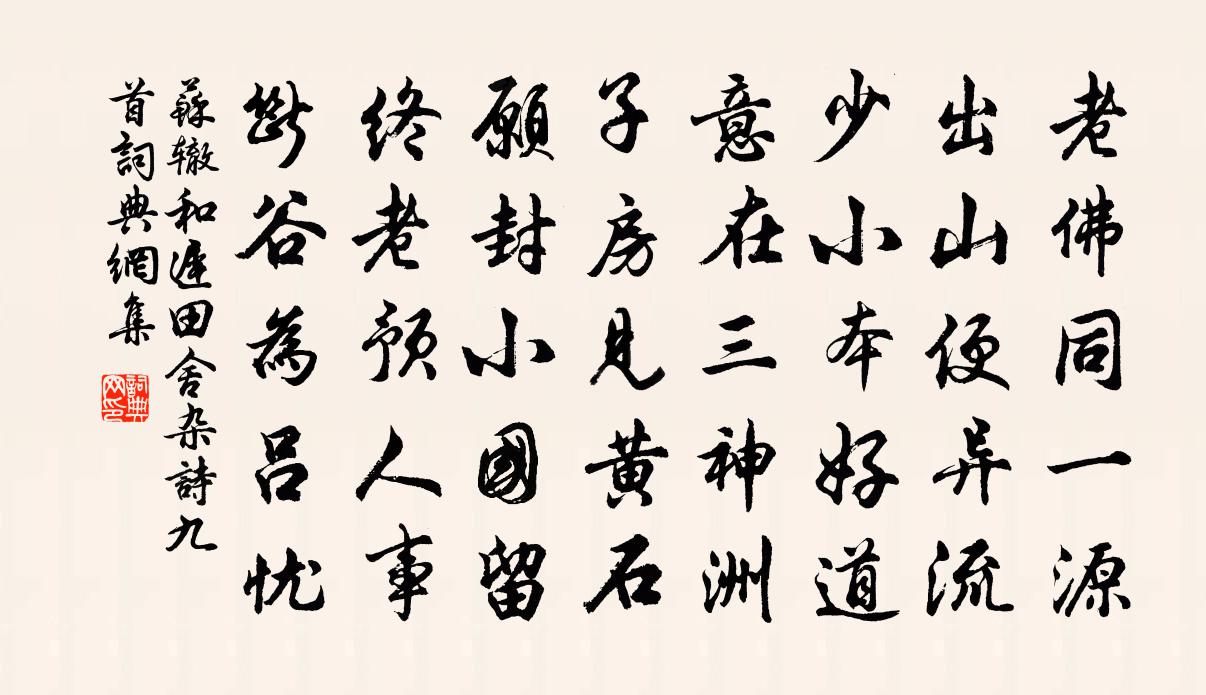 老佛同一源
出山便异流
少小本好道
意在三神洲
子房見黄石
願封小國留
終老預人事
斷谷為呂忧
蘇辙和遲田舍杂詩九
首詞典網集
詞典
网印